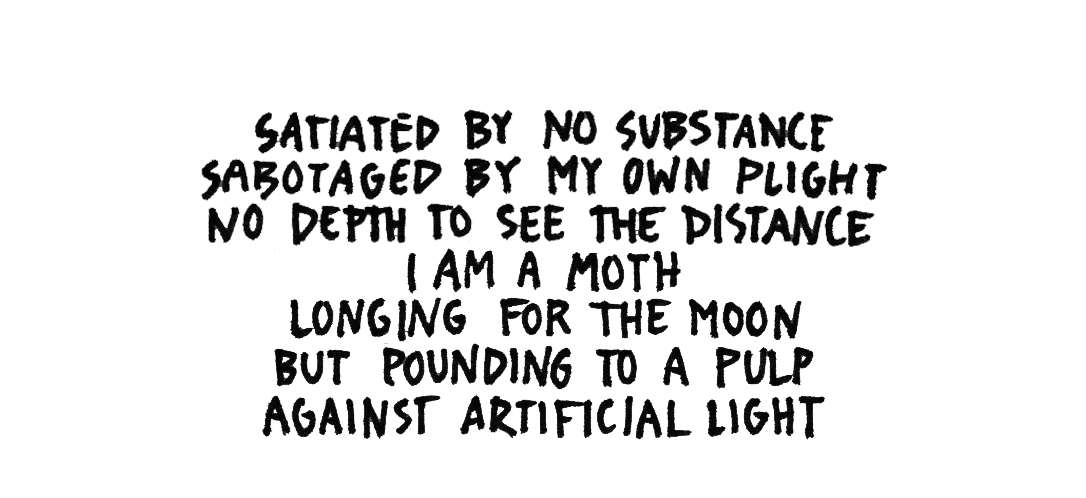 SATIATED BY NO SUBSTANCE
SABOTAGED BY MY OWN PLIGHT
NO DEPTH TO SEE THE DISTANCE
I AM A MOTH
LONGING FOR THE MOON
BUT POUNDING TO A PULP
AGAINST ARTIFICIAL LIGHT